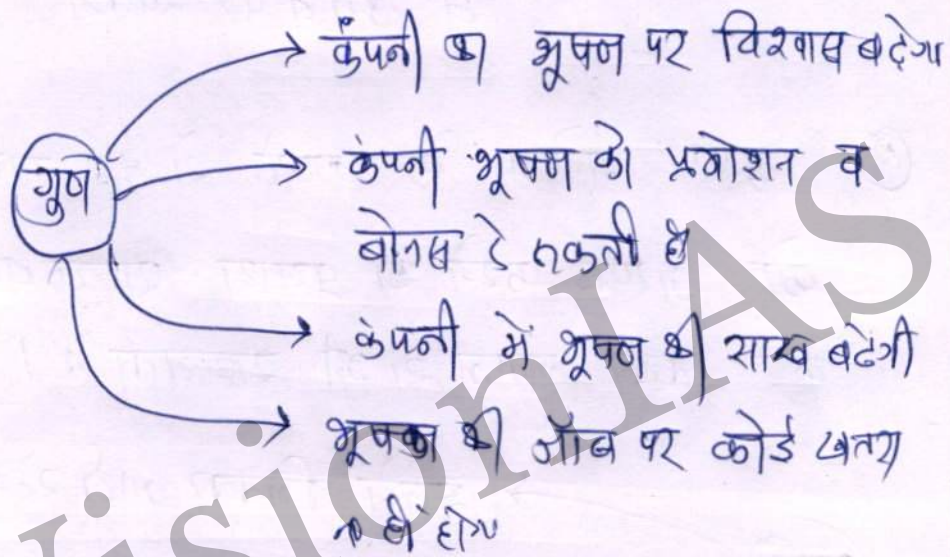 गुण
कंपनी का भूषण पर विश्वास बढ़ेगा
कंपनी भूषण को प्रमोशन व
बोनस दे सकती है
कंपनी में भूषण की साख बढेगी
भूषण की जॉब पर कोई खतरा
नहीं होगा
VisionIAS